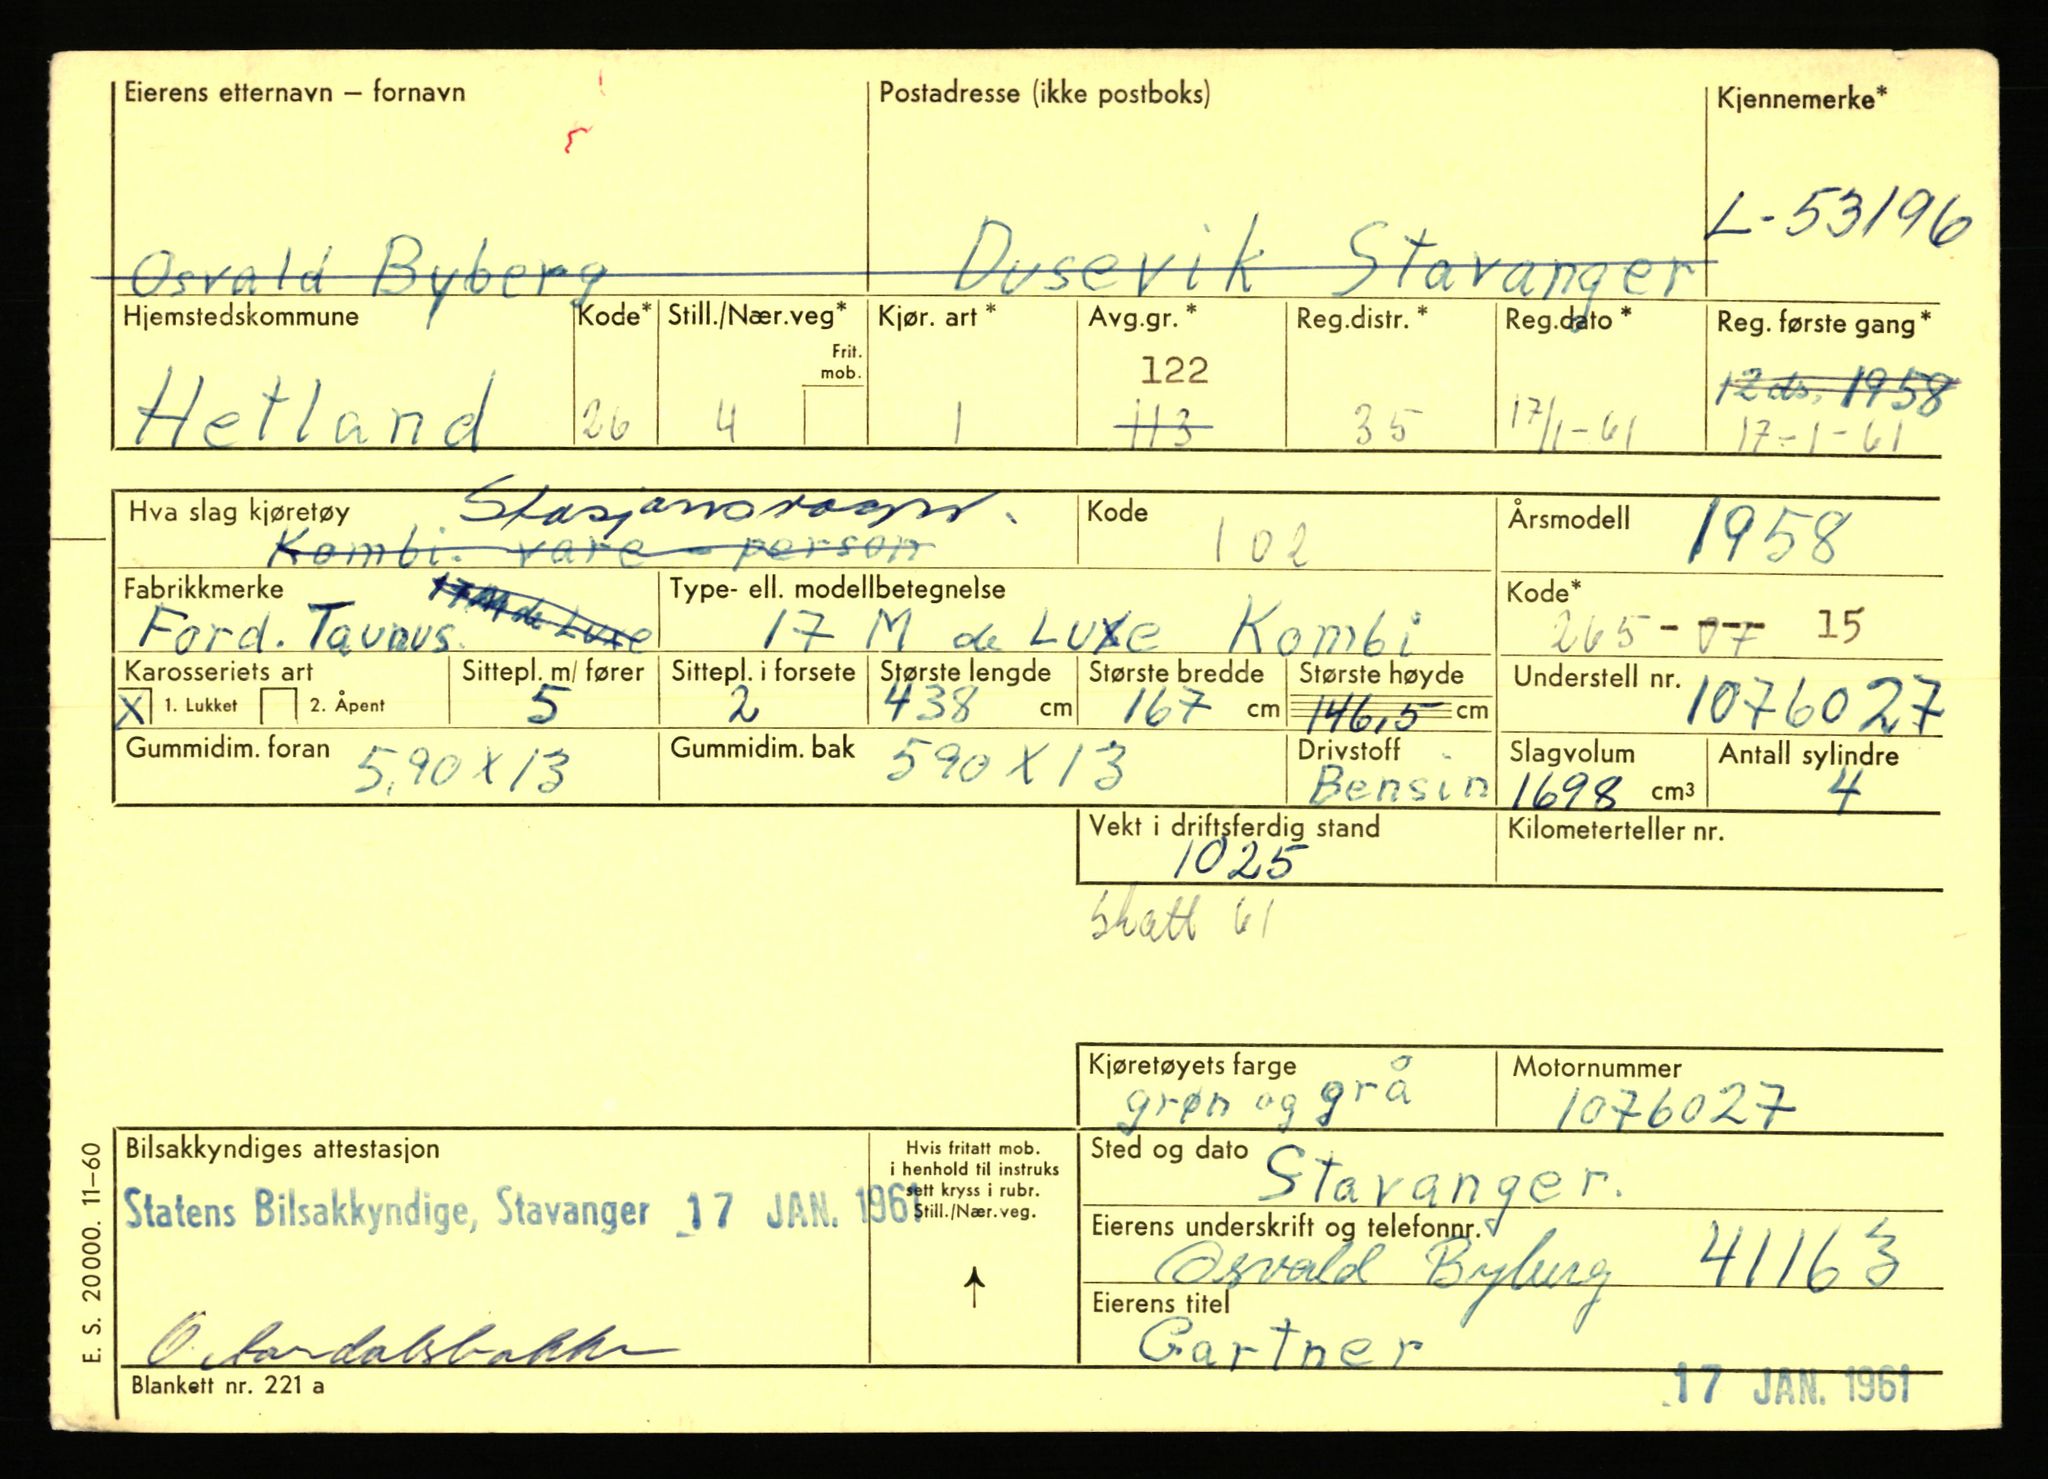 Eierens etternavn – fornavn Postadresse (ikke postboks) Kjennemerke*
L-53196
Osvald Byberg Dusevik Stavanger
Hjemstedskommune Kode* Still./Nær.veg* Frit. mob. Kjør. art* Avg.gr.* Reg.distr.* Reg.dato* Reg. første gang*
122 12 ds. 1958
Hetland 26 4 1 113 35 17/1-61 17-1-61
Hva slag kjøretøy Stasjonsvogn. Kode 102 Årsmodell 1958
Kombi. vare-person
Fabrikkmerke 17M de Luxe Type- ell. modellbetegnelse Kode*
Ford. Taunus. 17 M de Luxe Kombi 265-07 15
Karosseriets art Sittepl. m/ fører Sittepl. i forsete Største lengde Største bredde Største høyde Understell nr.
X 1. Lukket 2. Åpent 5 2 438 cm 167 cm 146,5 cm 1076027
Gummidim. foran 5,90 x 13 Gummidim. bak 590 x 13 Drivstoff Bensin Slagvolum 1698 cm3 Antall sylindre 4
Vekt i driftsferdig stand Kilometerteller nr.
1025
Skatt 61
Kjøretøyets farge Motornummer
grøn og grå 1076027
Bilsakkyndiges attestasjon Hvis fritatt mob. i henhold til instruks sett kryss i rubr. Still./Nær.veg. Sted og dato Stavanger.
Statens Bilsakkyndige, Stavanger 17 JAN. 1961
Eierens underskrift og telefonnr.
Osvald Byberg 41163
↑
Eierens titel
Gartner
Blankett nr. 221 a
17 JAN. 1961
E. S. 20000. 11–60